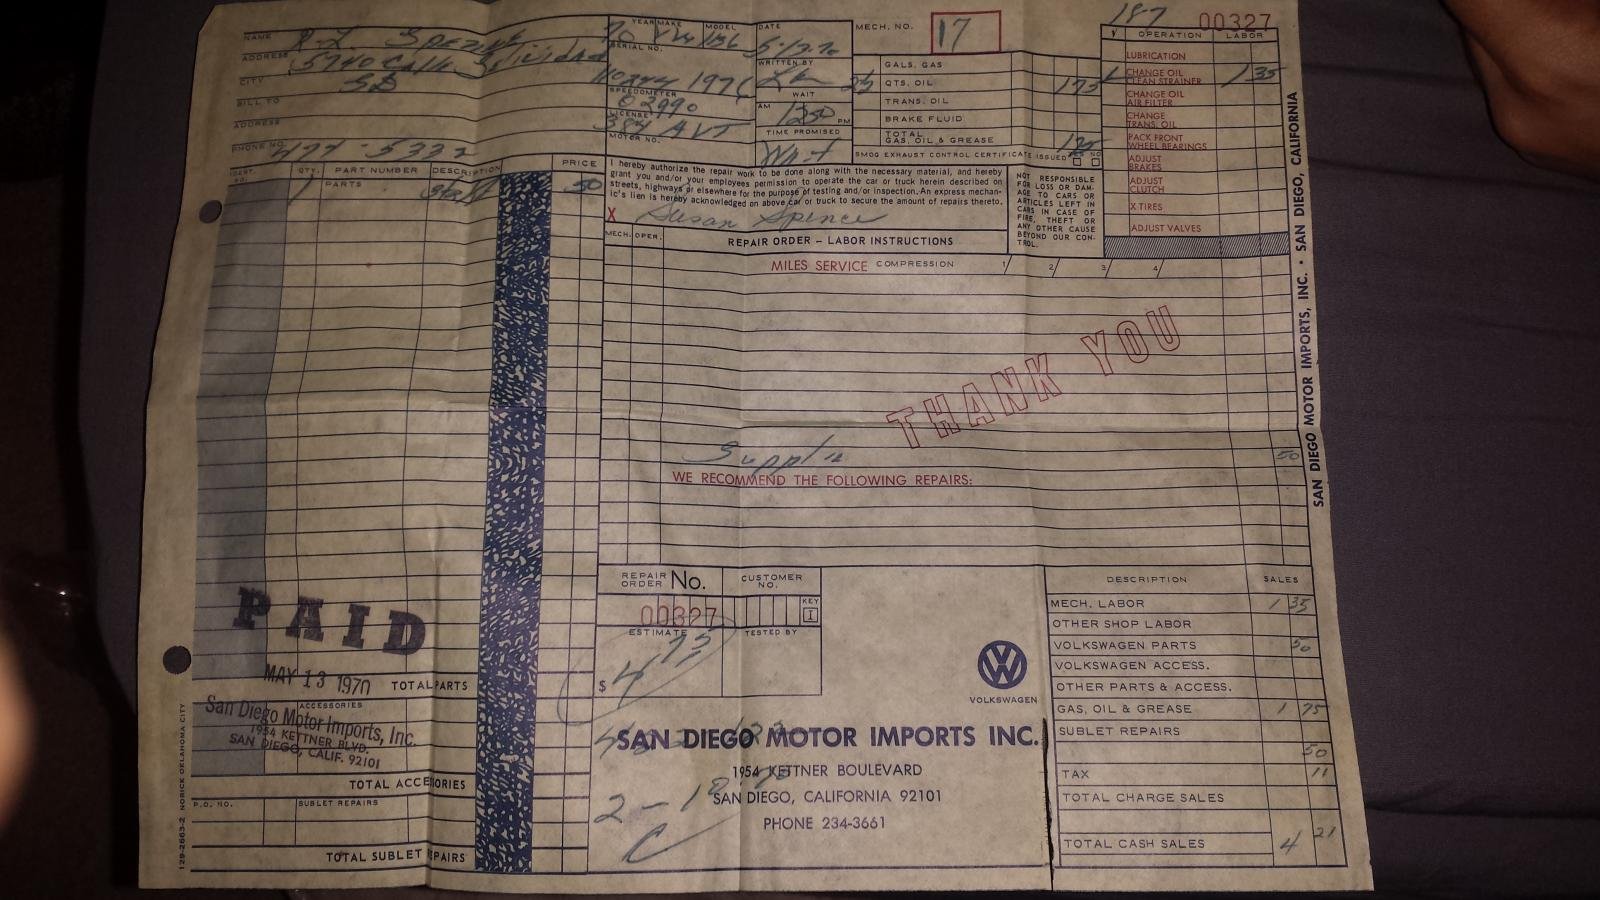 187 00327
NAME
ADDRESS 5940 Calle
CITY SD
BILL TO
ADDRESS
PHONE NO. 477-5332
YEAR MAKE MODEL
70 VW
SERIAL NO.
SPEEDOMETER
02990
LICENSE
384 AVT
MOTOR NO.
DATE
5-13-70
WRITTEN BY
WAIT
AM 1250 PM
TIME PROMISED
Wait
MECH. NO. 17
GALS. GAS
2½ QTS. OIL 175
TRANS. OIL
BRAKE FLUID
TOTAL GAS, OIL & GREASE 175
SMOG EXHAUST CONTROL CERTIFICATE ISSUED YES NO
√ OPERATION LABOR
LUBRICATION
CHANGE OIL CLEAN STRAINER 1 35
CHANGE OIL AIR FILTER
CHANGE TRANS. OIL
PACK FRONT WHEEL BEARINGS
ADJUST BRAKES
ADJUST CLUTCH
X TIRES
ADJUST VALVES
IDENT. NO. QTY. PART NUMBER DESCRIPTION PRICE
PARTS
1 50
I hereby authorize the repair work to be done along with the necessary material, and hereby
grant you and/or your employees permission to operate the car or truck herein described on
streets, highways or elsewhere for the purpose of testing and/or inspection. An express mechan-
ic's lien is hereby acknowledged on above car or truck to secure the amount of repairs thereto.
X Susan Spence
NOT RESPONSIBLE
FOR LOSS OR DAM-
AGE TO CARS OR
ARTICLES LEFT IN
CARS IN CASE OF
FIRE, THEFT OR
ANY OTHER CAUSE
BEYOND OUR CON-
TROL.
MECH. OPER. REPAIR ORDER – LABOR INSTRUCTIONS
MILES SERVICE COMPRESSION 1/ 2/ 3/ 4/
THANK YOU
50
WE RECOMMEND THE FOLLOWING REPAIRS:
SAN DIEGO MOTOR IMPORTS, INC. • SAN DIEGO, CALIFORNIA
PAID
MAY 13 1970
San Diego Motor Imports, Inc.
1954 KETTNER BLVD.
SAN DIEGO, CALIF. 92101
TOTAL PARTS
ACCESSORIES
TOTAL ACCESSORIES
P.O. NO. SUBLET REPAIRS
TOTAL SUBLET REPAIRS
129-2663-2 NORICK OKLAHOMA CITY
REPAIR ORDER No. CUSTOMER NO.
00327 KEY I
ESTIMATE TESTED BY
$ 4 75
VOLKSWAGEN
SAN DIEGO MOTOR IMPORTS INC.
1954 KETTNER BOULEVARD
SAN DIEGO, CALIFORNIA 92101
PHONE 234-3661
DESCRIPTION SALES
MECH. LABOR 1 35
OTHER SHOP LABOR
VOLKSWAGEN PARTS 50
VOLKSWAGEN ACCESS.
OTHER PARTS & ACCESS.
GAS, OIL & GREASE 1 75
SUBLET REPAIRS
50
TAX 11
TOTAL CHARGE SALES
TOTAL CASH SALES 4 21